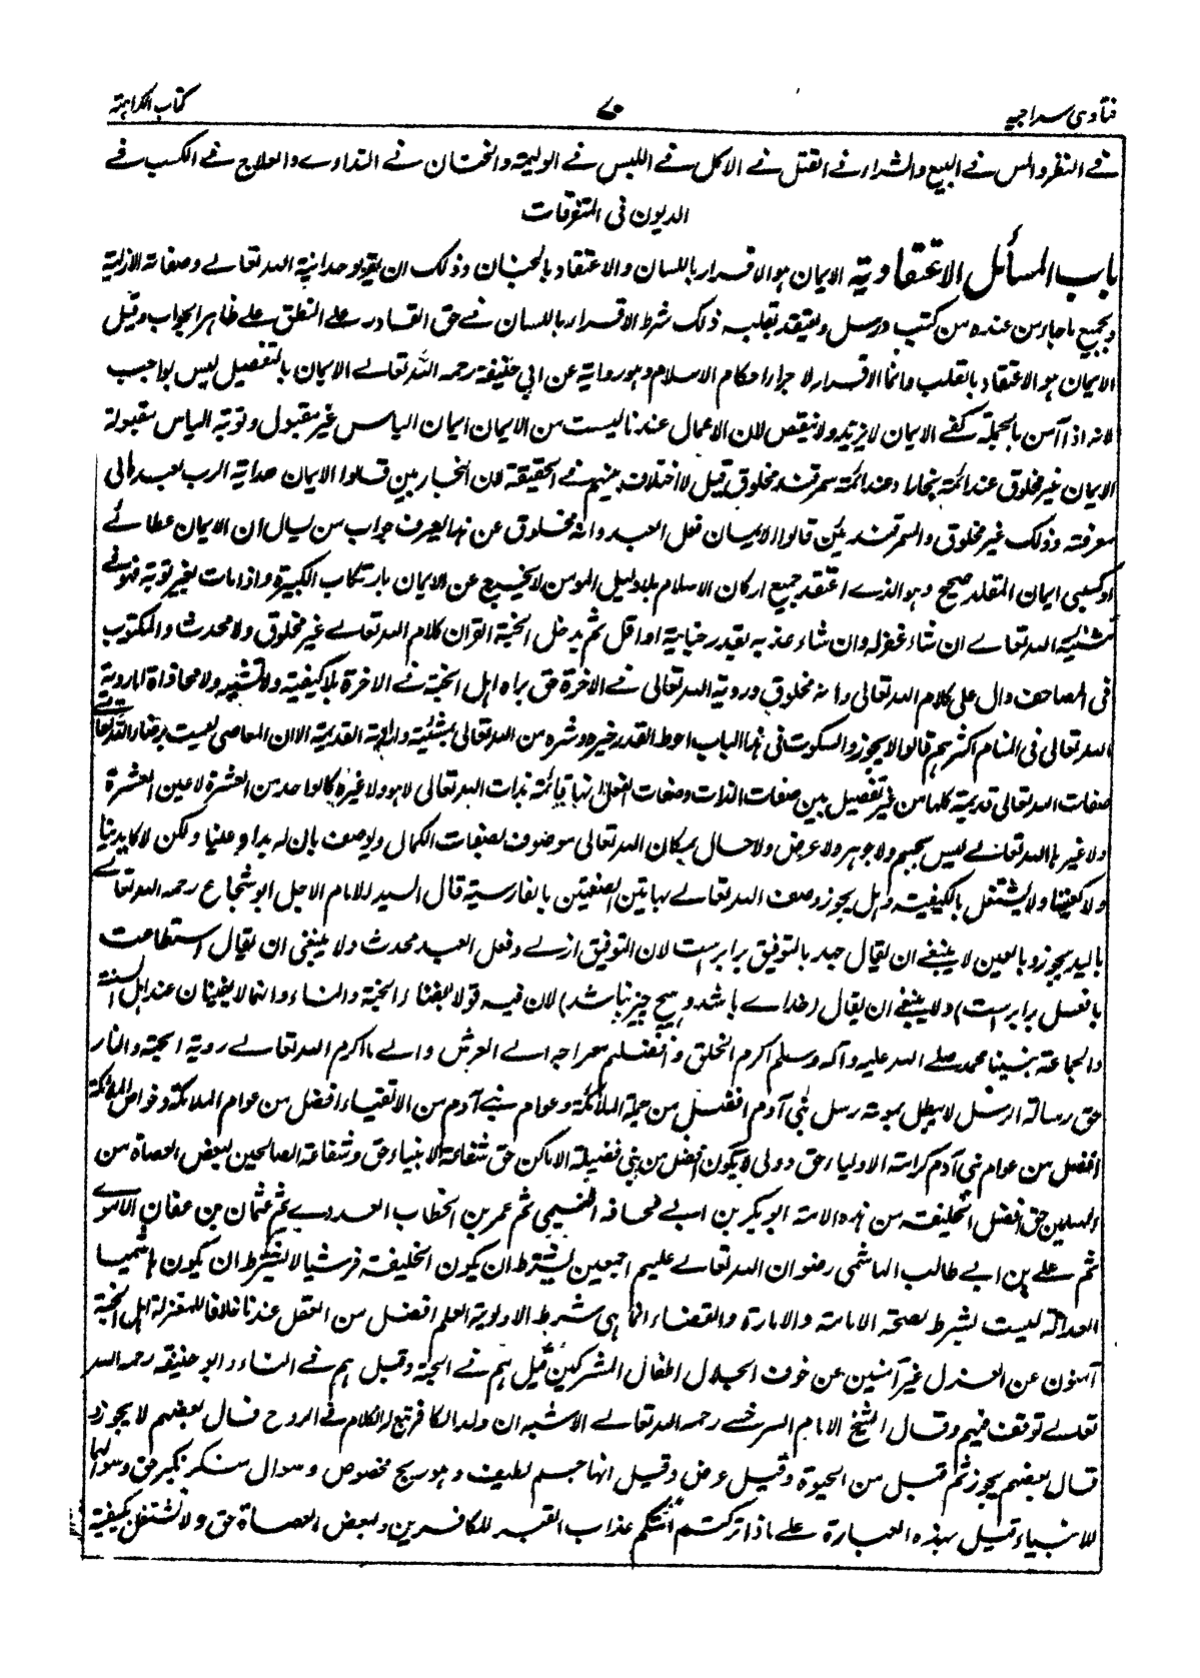 فتاوى سراجيه ٧٠ كتاب الكراهته
في النظر والمس في البيع والشراء في القتل في الاكل في اللبس في الوليمة والختان في التداوے والعلاج في الكسب في
الديون في المتفرقات
باب المسائل الاعتقادية الايمان هو الاقرار باللسان والاعتقاد بالجنان وذلك ان يقر بوحدانية الله تعالے وصفاته الازلية
وبجميع ما جاء من عنده من كتب ورسل ويعتقد بقلبه ذلك شرط الاقرار باللسان في حق القادر على النطق على ظاهر الجواب وقيل
الايمان هو الاعتقاد بالقلب وانما الاقرار لاجراء احكام الاسلام وهو رواية عن ابي حنيفة رحمه الله تعالے الايمان بالتفصيل ليس بواجب
لانه اذا آمن بالجملة كفے الايمان لا يزيد ولا ينقص لان الاعمال عندنا ليست من الايمان ايمان الياس غير مقبول وتوبة الياس مقبولة
الايمان غير مخلوق عند ائمة بخارا وعند ائمة سمرقند مخلوق قيل لا اختلاف بينهم في الحقيقة لان البخاريين قالوا الايمان هداية الرب لعبده الى
معرفته وذلك غير مخلوق والسمرقنديين قالوا الايمان فعل العبد وانه مخلوق عن هذا يعرف جواب من يسال ان الايمان عطائے
او كسبي ايمان المقلد صحيح وهو الذے اعتقد جميع اركان الاسلام بلا دليل المومن لا يخرج عن الايمان بارتكاب الكبيرة واذا مات بغير توبة فهو في
مشيئة الله تعالے ان شاء غفر له وان شاء عذبه بقدر جناية او اقل ثم يدخل الجنة القران كلام الله تعالے غير مخلوق ولا محدث والمكتوب
في المصاحف دال على كلام الله تعالى وانه مخلوق ورويه الله تعالى في الاخرة حق يراه اهل الجنة في الاخرة بلا كيفية ولا تشبيه ولا محاذاة اما روية
الله تعالى في المنام اكثرهم قالوا لا يجوز والسكوت في هذا الباب احوط القدر خيره وشره من الله تعالى بمشيئته وارادته القديمة الا ان المعاصي ليست برضاء الله تعالے
صفات الله تعالى قديمة كلها من غير تفصيل بين صفات الذات وصفات الفعل انها قائمة بذات الله تعالى لا هو ولا غيره كالواحد من العشرة لا عين العشرة
ولا غيرها الله تعالے ليس بجسم ولا جوهر ولا عرض ولا حال بمكان الله تعالى موصوف بصفات الكمال ويوصف بان له يدا وعينا ولكن لا كايدينا
ولا كعيننا ولا يشتغل بالكيفية وهل يجوز وصف الله تعالے بهاتين الصفتين بالفارسية قال السيد الامام الاجل ابو شجاع رحمه الله تعالے
باليد يجوز وبالعين لا ينبغے ان يقال جهد بالتوفيق برابرست لان التوفيق ازلے وفعل العبد محدث ولا ينبغي ان يقال استطاعت
بافعل برابرست) ولا ينبغے ان يقال (خداے باشد وہيچ چيز نباشد) لان فيه قولا بفناء الجنة والنار وانهما لا يفنيان عند اهل السنة
والجماعة نبينا محمد صلے الله عليه وآله وسلم اكرم الخلق وافضلهم معراجه الے العرش والے ما اكرم الله تعالے روية الجنة والنار
حق رسالة الرسل لا يبطل بموته رسل بني آدم افضل من جملة الملائكة وعوام بنے آدم من الاتقياء افضل من عوام الملائكة وخواص الملائكة
افضل من عوام بني آدم كرامة الاولياء حق وولى لا يكون افضل من نبي فضيلة الاماكن حق شفاعة الانبياء حق وشفاعة الصالحين لبعض العصاة من
المسلمين حق افضل الخليفة من هذه الامة ابو بكر بن ابے قحافه التيمي ثم عمر بن الخطاب العدوے ثم عثمان بن عفان الاموے
ثم علے بن ابے طالب الهاشمي رضوان الله تعالے عليهم اجمعين يشترط ان يكون الخليفة قرشيا لا يشترط ان يكون هاشميا
العدالة ليست بشرط لصحة الامامة والامارة والقضاء انما هي شرط الاولوية العلم افضل من العقل عندنا خلافا للمعتزلة اهل الجنة
آمنون عن العزل غير آمنين عن خوف الجلال اطفال المشركين قيل هم في الجنة وقيل هم في النار وابو حنيفه رحمه الله
تعالے توقف فيهم وقال الشيخ الامام السرخسے رحمه الله تعالے الاشبه ان ولد الكافر تبع له الكلام في الروح قال بعضهم لا يجوز و
قال بعضهم يجوز ثم قيل من الحيوة وقيل عرض وقيل انها جسم لطيف وهو ريح مخصوص وسوال منكر نكير حق وسوالهما
للانبياء قيل بهذه العبارة علے ماذا تركتم امتكم عذاب القبر للكافرين ولبعض العصاة حق ولا نشتغل بكيفية